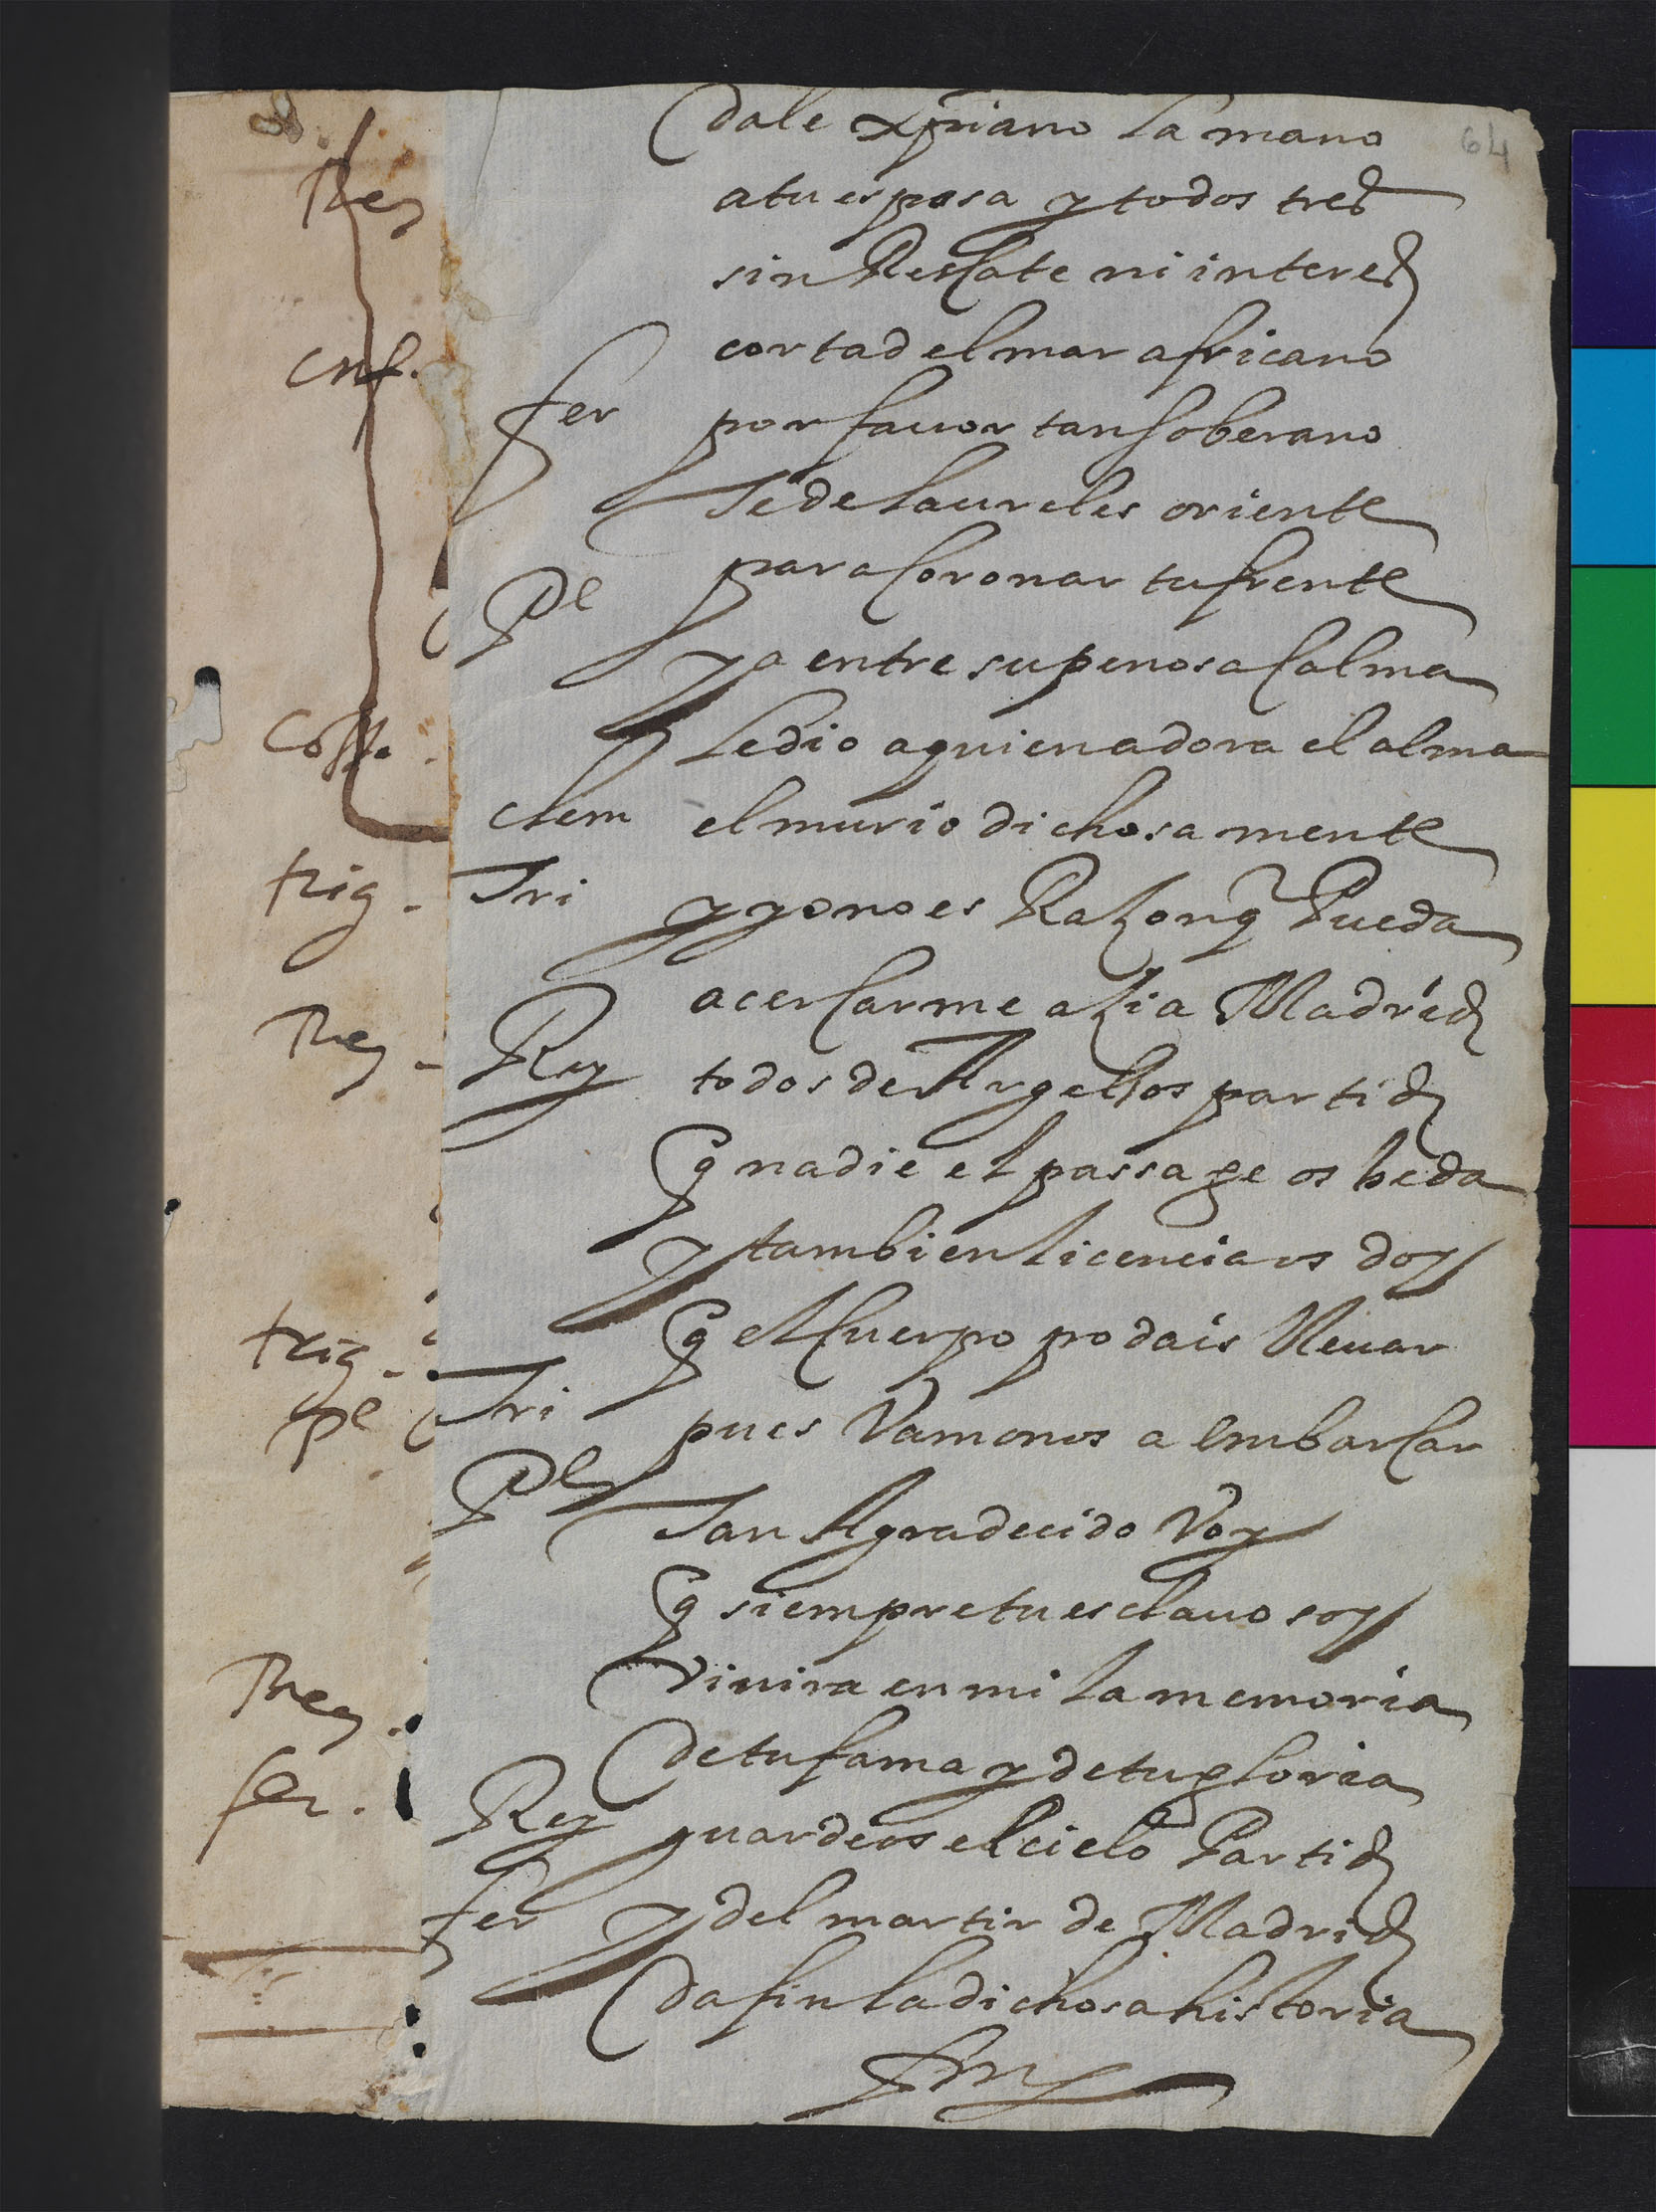 64
dale xp̃iano la mano
a tu esposa y todos tres
sin Rescate ni interes
cortad el mar africano
fer por fauor tan soberano
Te de laureles oriente
para coronar tu frente
Pe ya entre su penosa calma
le dio a quien adora el alma
clem el murio dichosa mente
Tri y yo no es Razon q̃ Pueda
acercarme azia Madrid
Rey todos de Argel os partid
q nadie el passage os beda
y tambien licencia os doy
q el cuerpo podais lleuar
Tri pues Vamonos a embarcar
Pe Tan Agradecido Voy
q siempre tu esclauo soy
Viuira en mi la memoria
de tu fama y de tu gloria
Rey guardeos el cielo Partid
fer y del martir de Madrid
da fin la dichosa historia
Fin
Rey
cosso
trig.
Rey
trig.
pe
Rey.
fer.